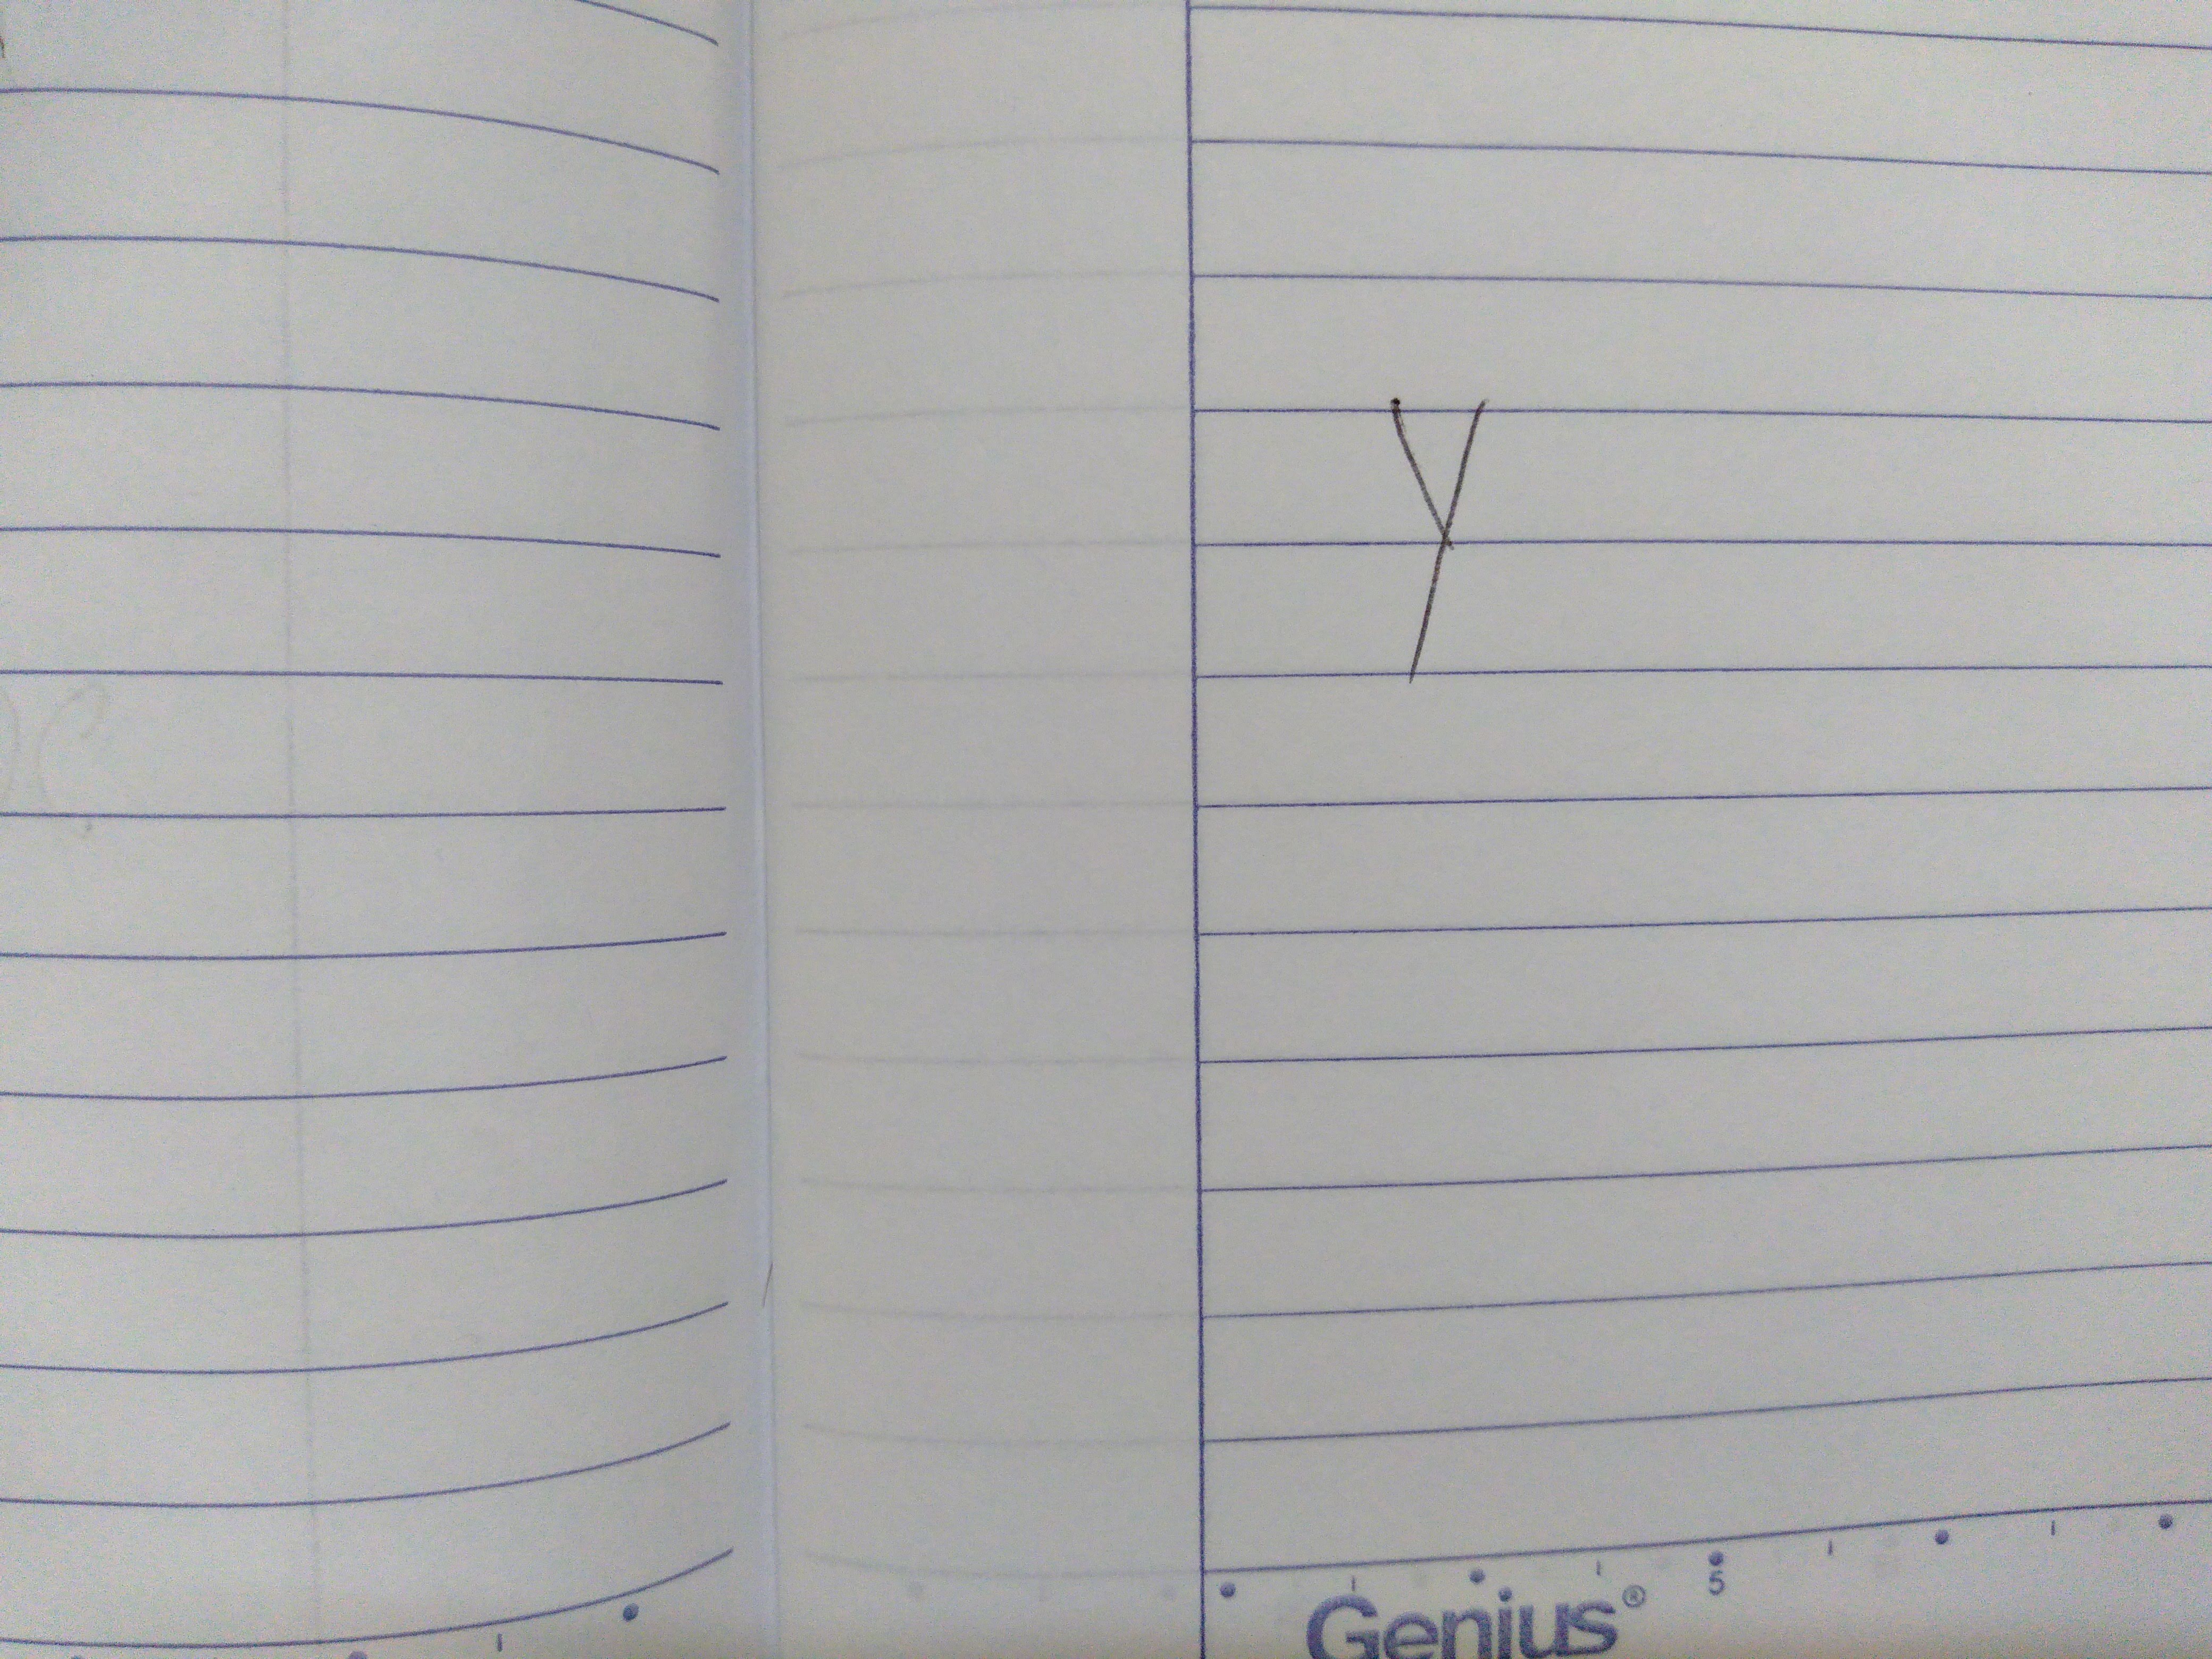 y
5
Genius®